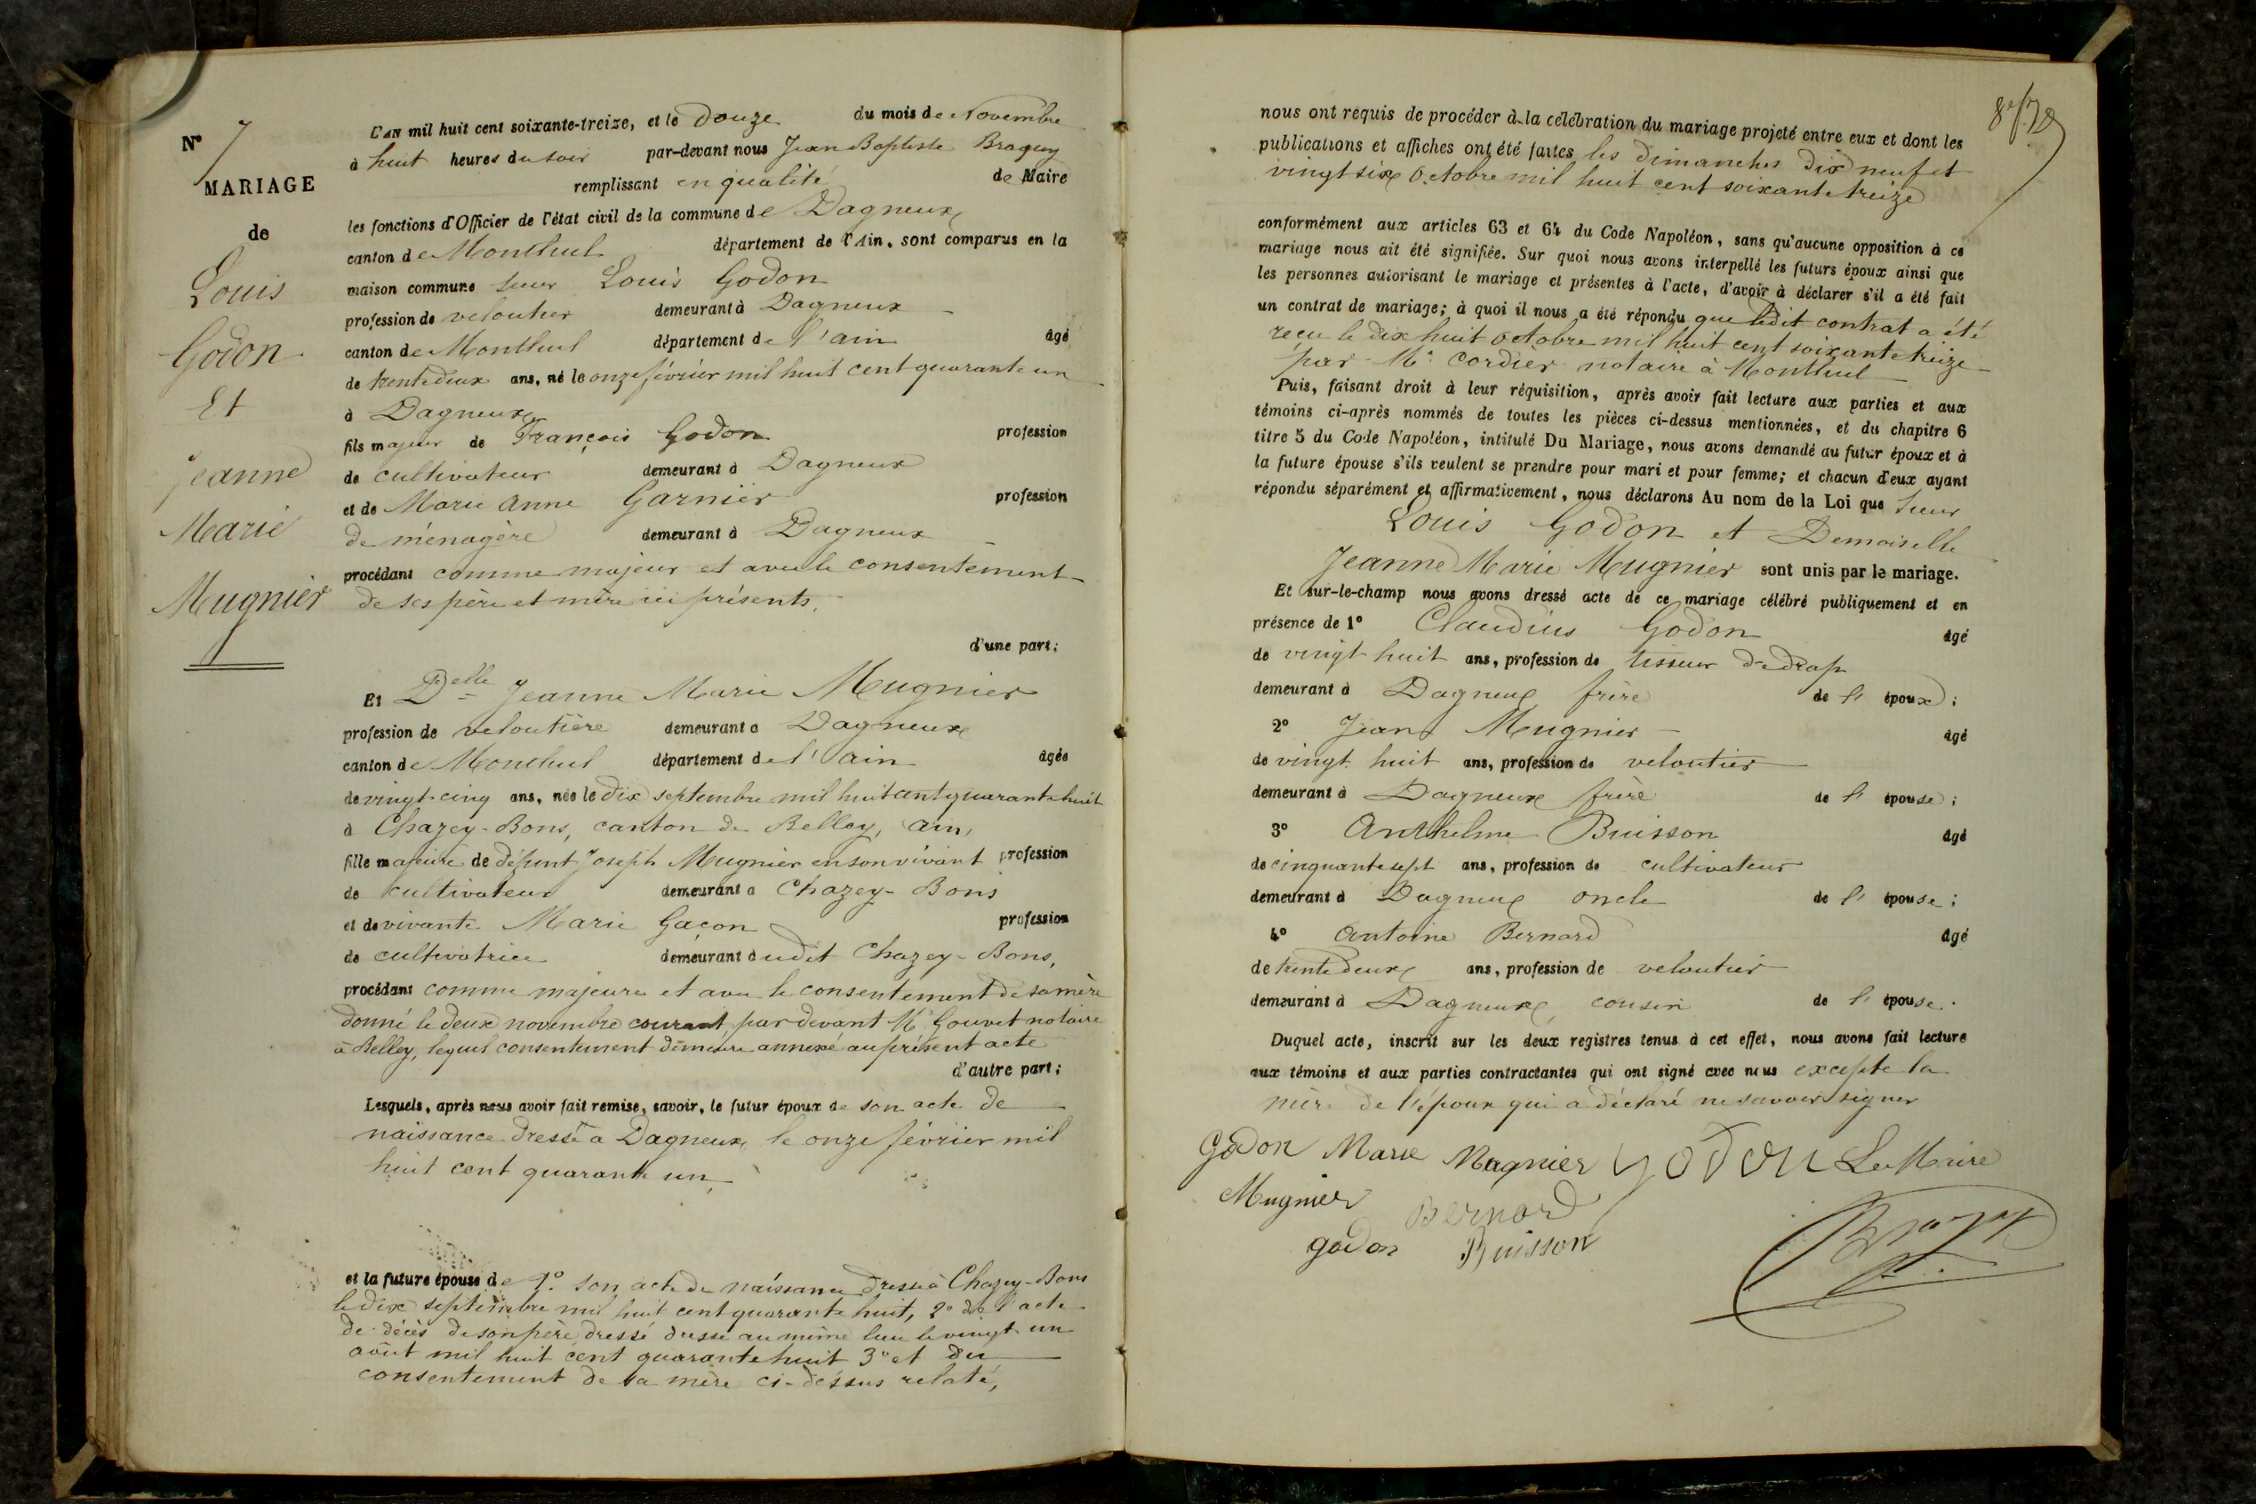 N° 7
MARIAGE
de
Louis
Godon
Et
Jeanne
Marie
Mugnier
L'AN mil huit cent soixante-treize, et le douze du mois de Novembre
à huit heures du soir par-devant nous Jean Baptiste Braguy
remplissant en qualité de Maire
les fonctions d'Officier de l'état civil de la commune de Dagneux
canton de Montluel département de l'Ain, sont comparus en la
maison commune sieur Louis Godon
profession de veloutier demeurant à Dagneux
canton de Montluel département de l'ain âgé
de trente deux ans, né le onze février mil huit cent quarante un
à Dagneux
fils majeur de François Godon profession
de cultivateur demeurant à Dagneux
et de Marie Anne Garnier profession
de ménagère demeurant à Dagneux
procédant comme majeur et avec le consentement
de ses père et mère ici présents,
d'une part;
Et Delle Jeanne Marie Mugnier
profession de veloutière demeurant à Dagneux
canton de Montluel département de l'ain âgée
de vingt-cinq ans, née le dix septembre mil huit cent quarante huit
à Chazey-Bons, canton de Belley, ain,
fille majeure de défunt Joseph Mugnier en son vivant profession
de cultivateur demeurant à Chazey-Bons
et de vivante Marie Gacon profession
de cultivatrice demeurant audit Chazey-Bons,
procédant comme majeure et avec le consentement de sa mère
donné le deux novembre courant par devant Me Gouvet notaire
à Belley, lequel consentement demeure annexé au présent acte
d'autre part;
Lesquels, après nous avoir fait remise, savoir, le futur époux de son acte de
naissance dressé à Dagneux le onze février mil
huit cent quarante un,
et la future épouse de 1° son acte de naissance dressé à Chazey-Bons
le dix septembre mil huit cent quarante huit, 2° de l'acte
de décès de son père dressé dressé au même lieu le vingt un
août mil huit cent quarante huit 3° et du
consentement de sa mère ci-dessus relaté,
nous ont requis de procéder à la célébration du mariage projeté entre eux et dont les
publications et affiches ont été faites les dimanches dix neuf et
vingt six octobre mil huit cent soixante treize
conformément aux articles 63 et 64 du Code Napoléon, sans qu'aucune opposition à ce
mariage nous ait été signifiée. Sur quoi nous avons interpellé les futurs époux ainsi que
les personnes autorisant le mariage et présentes à l'acte, d'avoir à déclarer s'il a été fait
un contrat de mariage; à quoi il nous a été répondu que ledit contrat a été
reçu le dix huit octobre mil huit cent soixante treize
par Me Cordier notaire à Montluel
Puis, faisant droit à leur réquisition, après avoir fait lecture aux parties et aux
témoins ci-après nommés de toutes les pièces ci-dessus mentionnées, et du chapitre 6
titre 5 du Code Napoléon, intitulé Du Mariage, nous avons demandé au futur époux et à
la future épouse s'ils veulent se prendre pour mari et pour femme; et chacun d'eux ayant
répondu séparément et affirmativement, nous déclarons Au nom de la Loi que Sieur
Louis Godon et Demoiselle
Jeanne Marie Mugnier sont unis par le mariage.
Et sur-le-champ nous avons dressé acte de ce mariage célébré publiquement et en
présence de 1° Claudius Godon âgé
de vingt huit ans, profession de tisseur de drap
demeurant à Dagneux frère de l'époux;
2° Jean Mugnier âgé
de vingt huit ans, profession de veloutier
demeurant à Dagneux frère de l'épouse;
3° Anthelme Buisson âgé
de cinquante sept ans, profession de cultivateur
demeurant à Dagneux oncle de l'épouse;
4° Antoine Bernard âgé
de trente deux ans, profession de veloutier
demeurant à Dagneux, cousin de l'épouse.
Duquel acte, inscrit sur les deux registres tenus à cet effet, nous avons fait lecture
aux témoins et aux parties contractantes qui ont signé avec nous excepté la
mère de l'époux qui a déclaré ne savoir signer
Godon Marie Magnier Godon Le Maire
Mugnier Bernard
godon Buisson